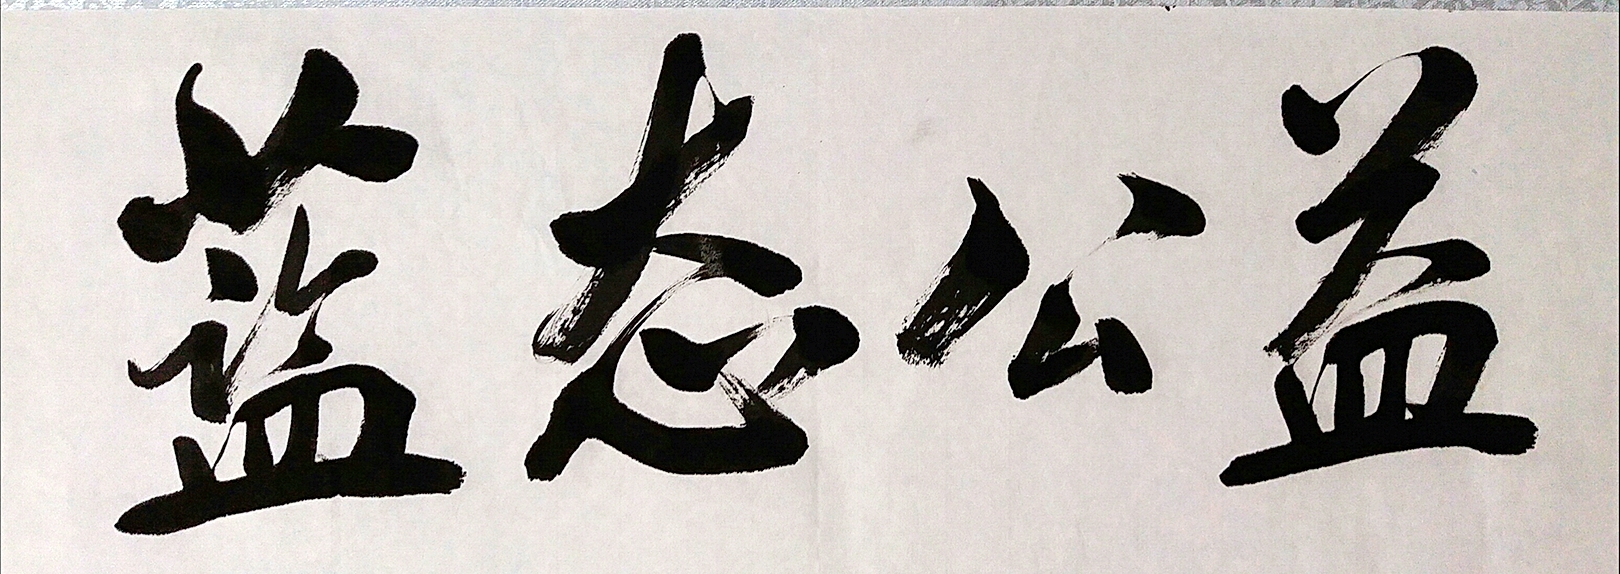 蓝态公益